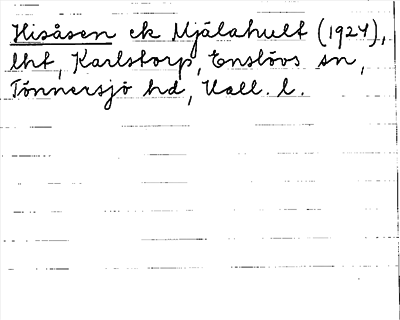 Hisåsen ek Mjälahult (1924),
lht, Karlstorp, Enslövs sn,
Tönnersjö hd, Hall. l.